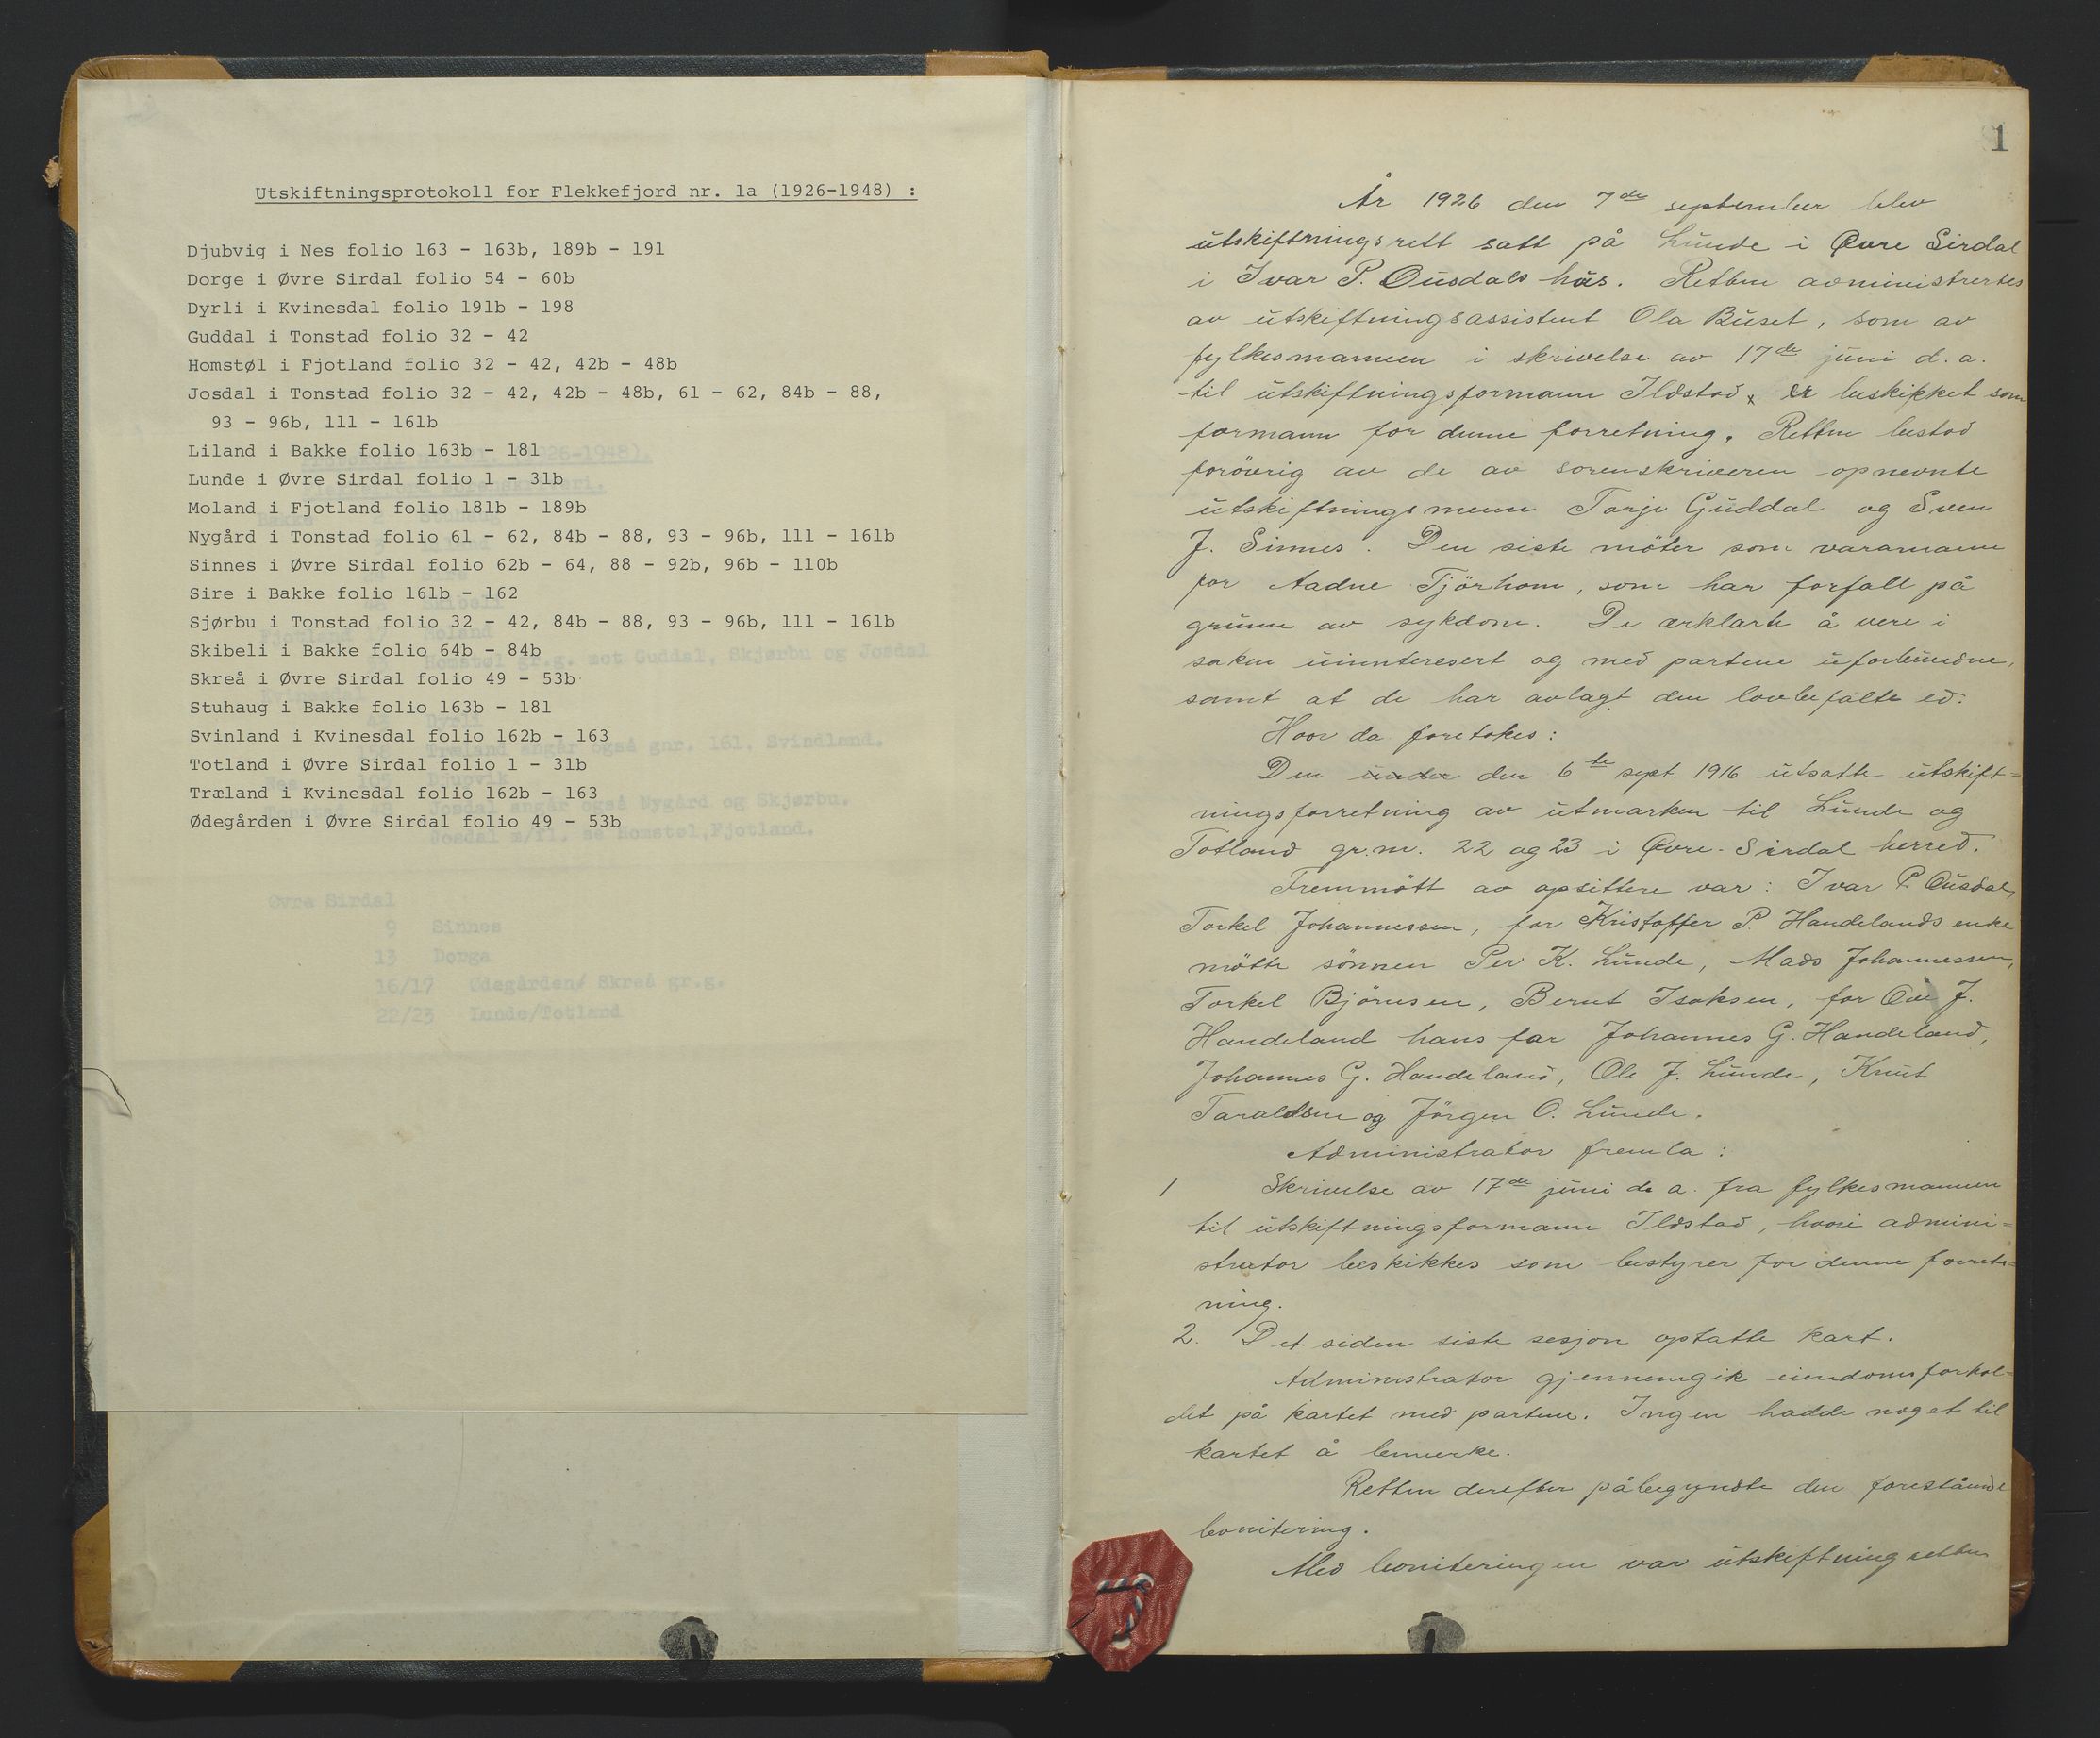 Utskiftningsprotokoll for Flekkefjord nr. 1a (1926-1948) :
Djubvig i Nes folio 163 - 163b, 189b - 191
Dorge i Øvre Sirdal folio 54 - 60b
Dyrli i Kvinesdal folio 191b - 198
Guddal i Tonstad folio 32 - 42
Homstøl i Fjotland folio 32 - 42, 42b - 48b
Josdal i Tonstad folio 32 - 42, 42b - 48b, 61 - 62, 84b - 88,
93 - 96b, 111 - 161b
Liland i Bakke folio 163b - 181
Lunde i Øvre Sirdal folio 1 - 31b
Moland i Fjotland folio 181b - 189b
Nygård i Tonstad folio 61 - 62, 84b - 88, 93 - 96b, 111 - 161b
Sinnes i Øvre Sirdal folio 62b - 64, 88 - 92b, 96b - 110b
Sire i Bakke folio 161b - 162
Sjørbu i Tonstad folio 32 - 42, 84b - 88, 93 - 96b, 111 - 161b
Skibeli i Bakke folio 64b - 84b
Skreå i Øvre Sirdal folio 49 - 53b
Stuhaug i Bakke folio 163b - 181
Svinland i Kvinesdal folio 162b - 163
Totland i Øvre Sirdal folio 1 - 31b
Træland i Kvinesdal folio 162b - 163
Ødegården i Øvre Sirdal folio 49 - 53b
Øvre Sirdal
9 Sinnes
13 Dorga
16/17 Ødegården/ Skreå gr.g.
22/23 Lunde/Totland
1
År 1926 den 7de september blev
utskiftningsrett satt på Lunde i Øvre Sirdal
i Ivar P. Ousdals hus. Retten administrertes
av utskiftningsassistent Ola Buset, som av
fylkesmannen i skrivelse av 17de juni d.a.
til utskiftningsformann Ildstad, er beskikket som
formann for denne forretning. Retten bestod
forövrig av de av sorenskriveren opnevnte
utskiftningsmenn Torje Guddal og Sven
J. Sinnes. Den siste möter som varamann
for Aadne Tjörhom, som har forfall på
grunn av sykdom. De erklærte å vere i
saken uinnteresert og med partene uforbundne,
samt at de har avlagt den lovbefalte ed.
Hvor da foretokes:
Den under den 6te sept. 1916 utsatte utskift=
ningsforretning av utmarken til Lunde og
Totland gr.nr. 22 og 23 i Øvre-Sirdal herred.
Fremmött av opsittere var: Ivar P. Ousdal,
Torkel Johannessen, for Kristoffer P. Handelands enke
mötte sönnen Per K. Lunde, Mads Johannessen,
Torkel Björnsen, Bernt Isaksen, for Ove J.
Handeland hans far Johannes G. Handeland,
Johannes G. Handeland, Ole J. Lunde, Knut
Taraldsen og Jörgen O. Lunde.
Administrator fremla:
1 Skrivelse av 17de juni d. a. fra fylkesmannen
til utskiftningsformann Ildstad, hvori admini=
strator beskikkes som bestyrer for denne forret=
ning.
2. Det siden siste sesjon optatte kart.
Administrator gjennemgik eiendomsforhol=
det på kartet med partene. Ingen hadde noget til
kartet å bemerke.
Retten derefter påbegyndte den forestående
bonitering.
Med boniteringen var utskiftningsretten